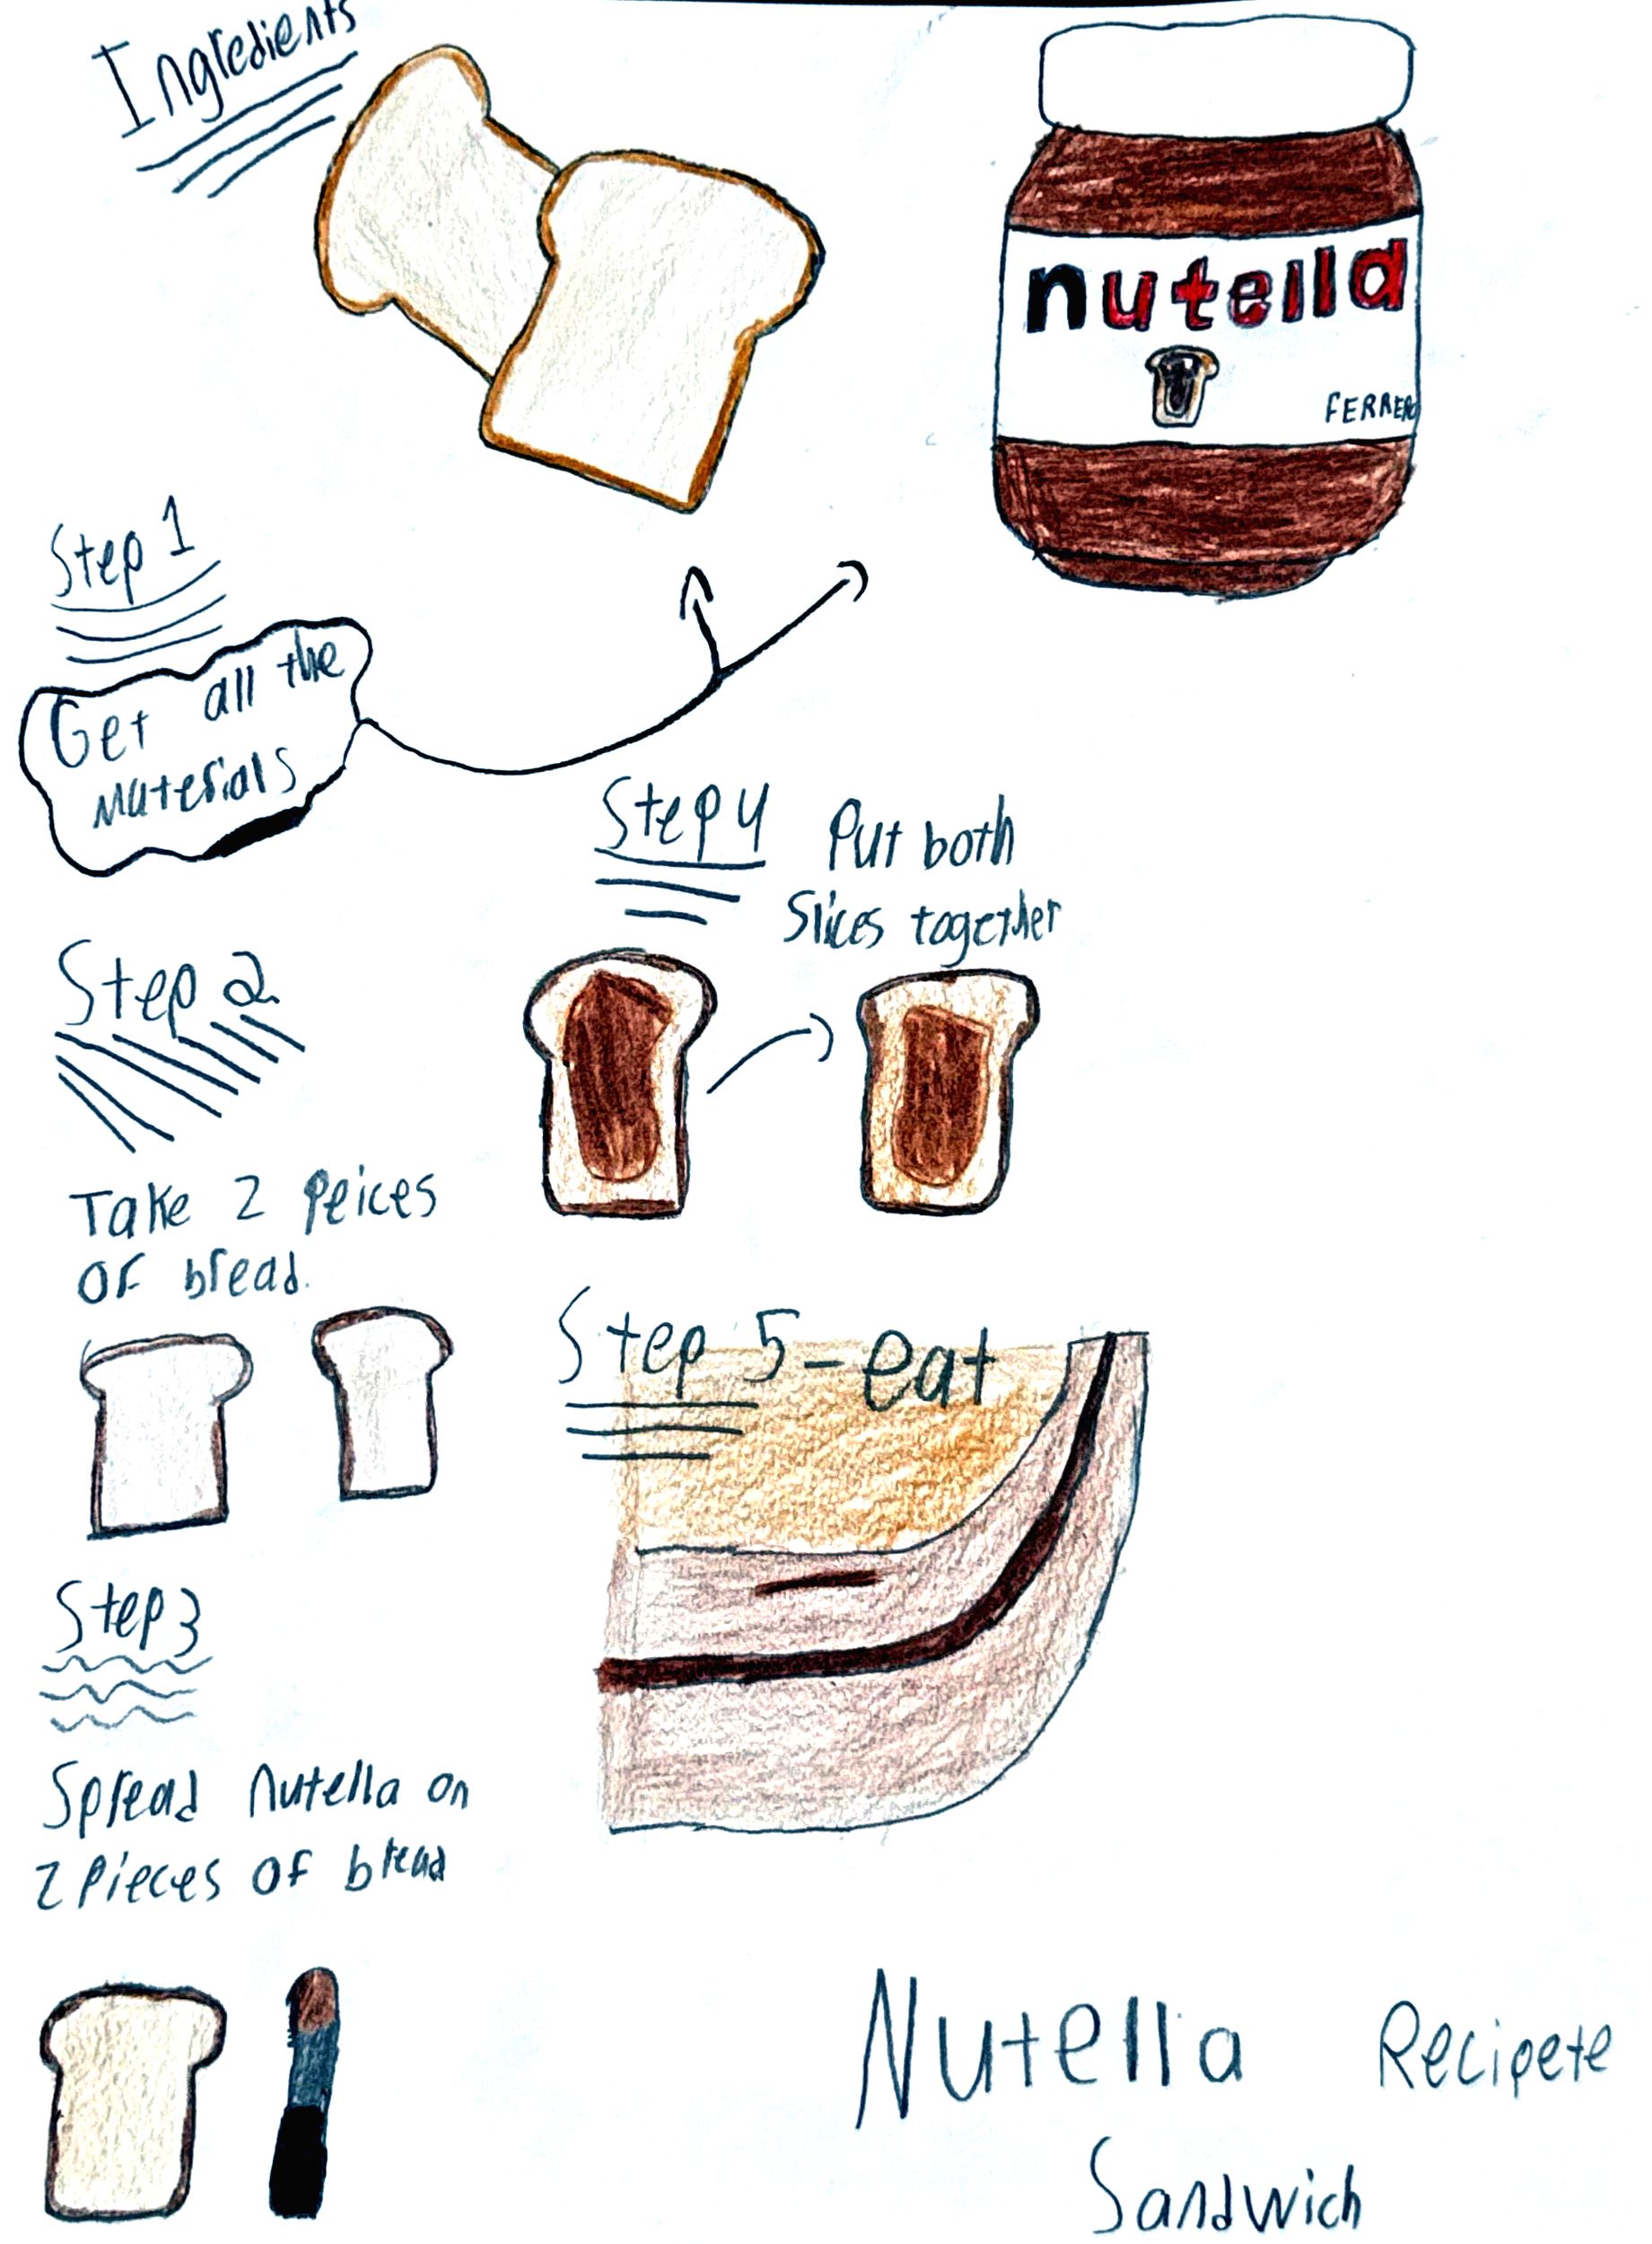 Ingredients
nutella
FERRERO
Step 1
Get all the
Materials
Step 2
Take 2 Peices
of bread.
Step 3
Spread nutella on
2 Pieces of bread
Step 4
Put both
Slices together
Step 5 - eat
Nutella Recipete
Sandwich